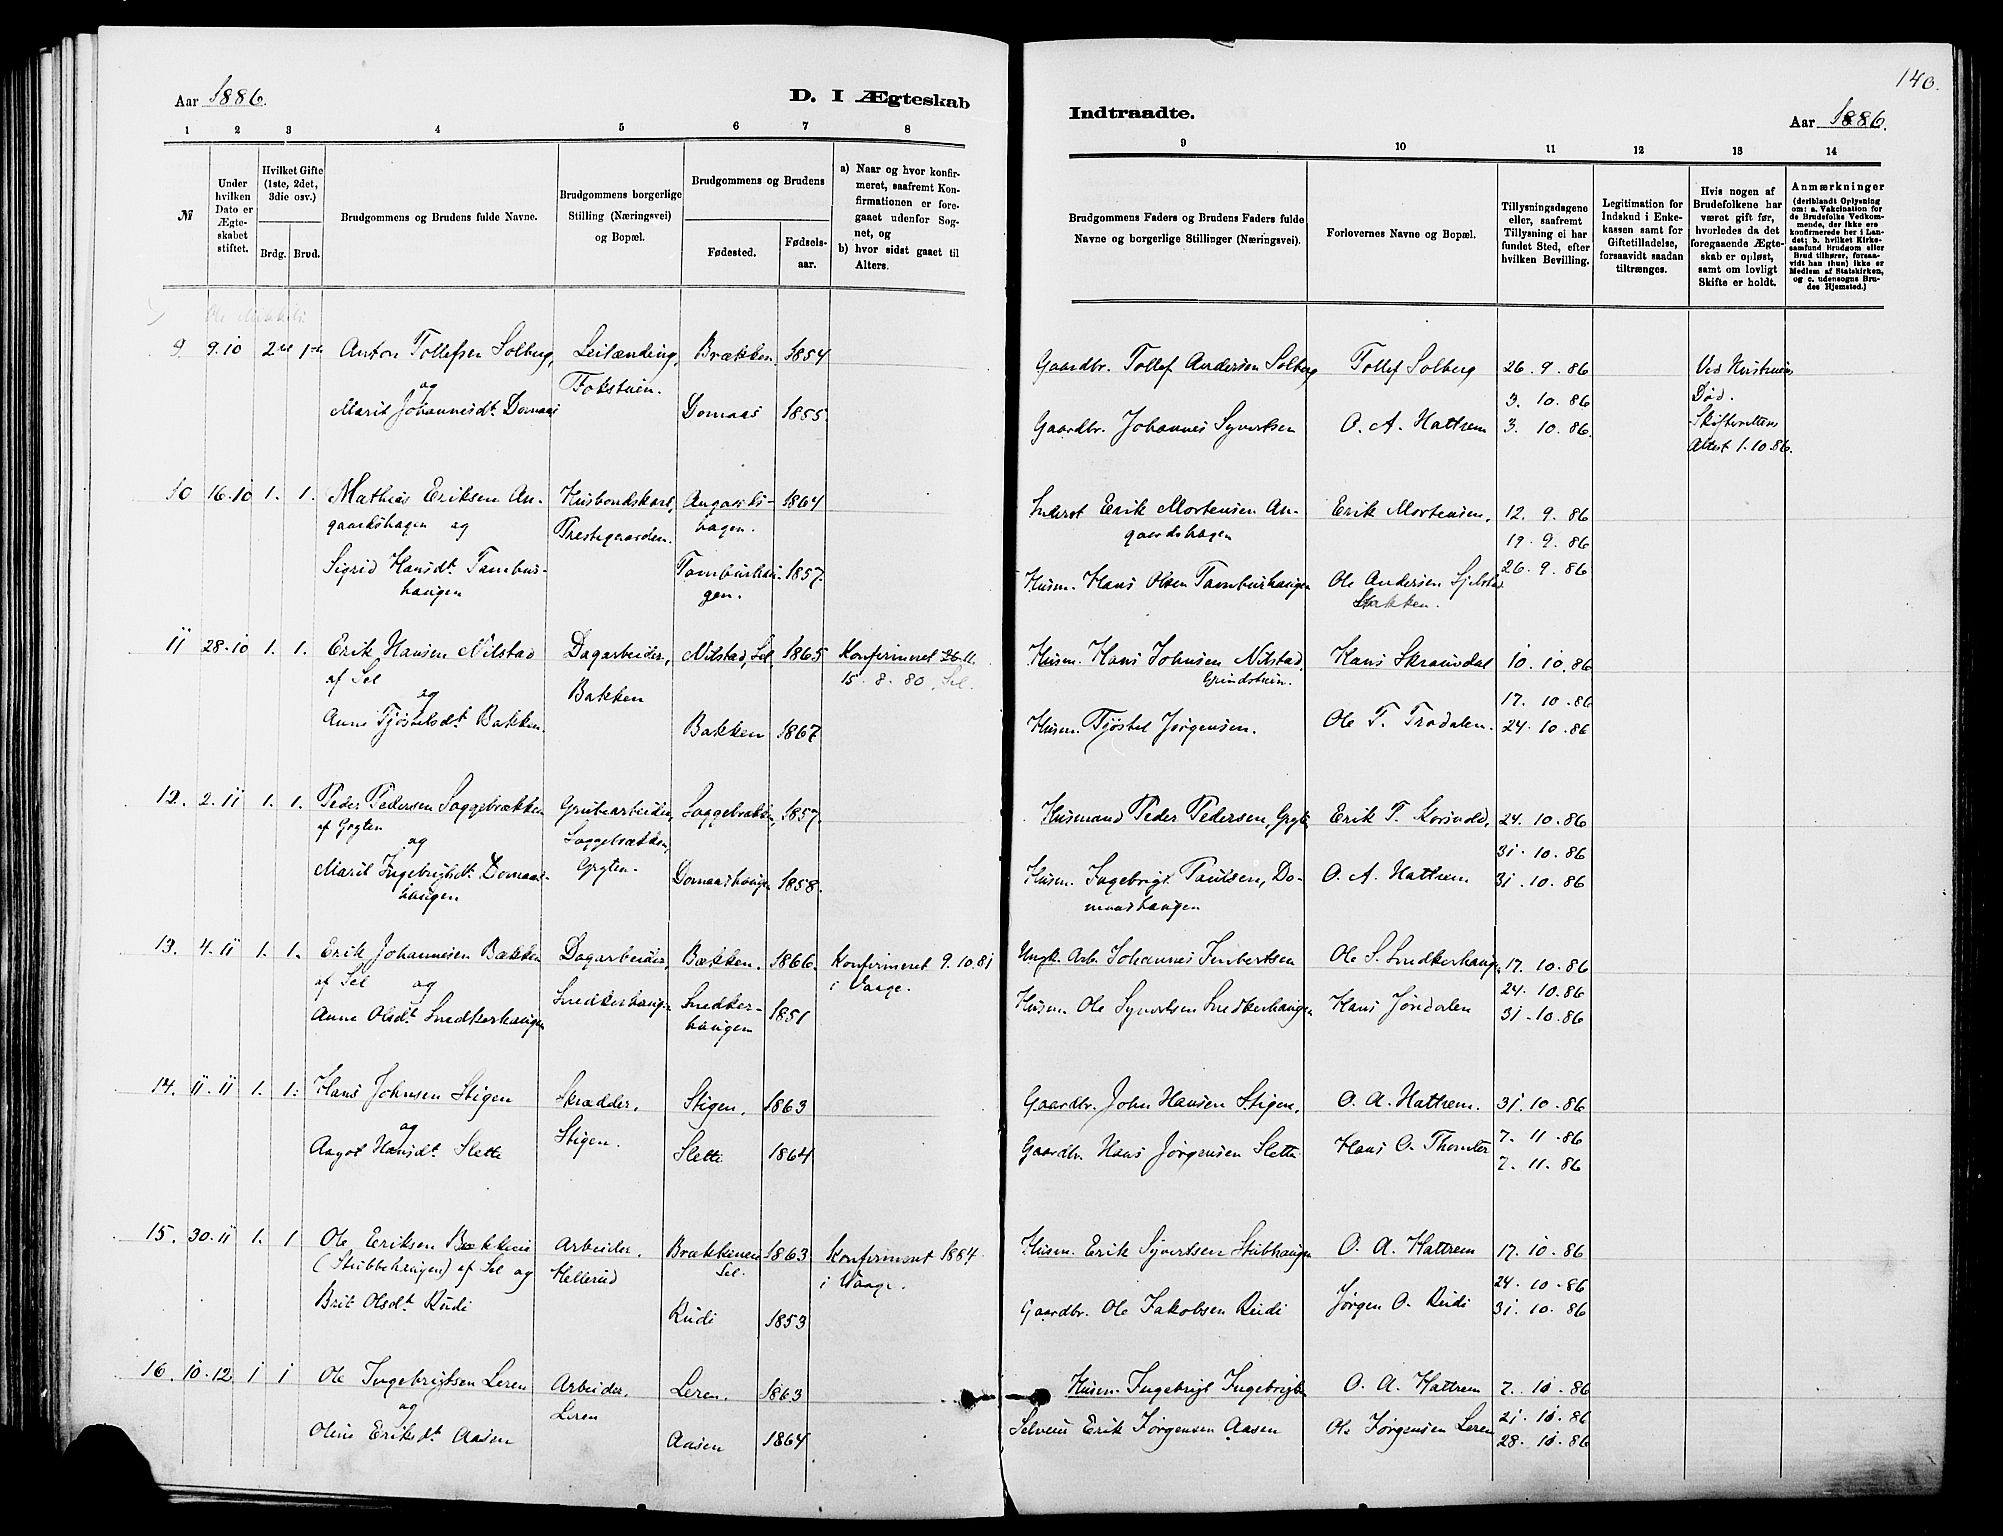 140.
Aar 1886.
D. I Ægteskab
Indtraadte.
Aar 1886.
1 2 3 4 5 6 7 8
9 10 11 12 13 14
№
Under hvilken Dato er Ægteskabet stiftet.
Hvilket Gifte (1ste, 2det, 3die osv.)
Brdg. Brud.
Brudgommens og Brudens fulde Navne.
Brudgommens borgerlige Stilling (Næringsvei) og Bopæl.
Brudgommens og Brudens
Fødested.
Fødselsaar.
a) Naar og hvor konfirmeret, saafremt Konfirmationen er foregaaet udenfor Sognet, og
b) hvor sidst gaaet til Alters.
Brudgommens Faders og Brudens Faders fulde Navne og borgerlige Stillinger (Næringsvei).
Forlovernes Navne og Bopæl.
Tillysningsdagene eller, saafremt Tillysning ei har fundet Sted, efter hvilken Bevilling.
Legitimation for Indskud i Enkekassen samt for Giftetilladelse, forsaavidt saadan tiltrænges.
Hvis nogen af Brudefolkene har været gift før, hvorledes da det foregaaende Ægteskab er opløst, samt om lovligt Skifte er holdt.
Anmærkninger (deriblandt Oplysning om: a. Vakcination for de Brudefolks Vedkommende, der ikke ere konfirmerede her i Landet; b. hvilket Kirkesamfund Brudgom eller Brud tilhører, forsaavidt han (hun) ikke er Medlem af Statskirken, og c. udensogns Brudes Hjemsted.)
9 9.10 2den 1ste Anton Tollefsen Solberg, Leilænding, Brækken. 1854
og Fokstuen.
Marit Johannesdt. Domaas Domaas 1855
Gaardbr. Tollef Andersen Solberg Tollef Solberg 26. 9. 86 Ved Hustruens
3. 10. 86 Død.
Gaardbr. Johannes Syvertsen O. A. Hattrem 3. 10. 86. Skifterettens
Attest 1.10.86.
10 16.10 1. 1. Mathias Eriksen An- Husbondskarl, Angards- 1864
gaardshagen og Prestegaarden. hagen.
Sigrid Hansdt. Tambur- Tamburhau- 1857.
haugen gen.
Inderst Erik Mortensen An- Erik Mortensen, 12. 9. 86
gaardshagen 19. 9. 86
Husm. Hans Olsen Tamburhaugen Ole Andersen Sjelstad 26. 9. 86
11 28.10 1. 1. Erik Hansen Nilstad Dagarbeider, Nilstad, Sel 1865 Konfirmeret
af Sel Bakken 15. 8. 80, Sel.
og
Anne Tjøstelsdt. Bakken. Bakken 1867
Husm. Hans Johnsen Nilstad, Hans Skramdal 10. 10. 86
Grindstuen. 17. 10. 86
Husm. Tjøstel Jørgensen. Ole T. Trodalen. 24. 10. 86
12. 2.11 1. 1. Peder Pedersen Saggebrækken Grubearbeider, Saggebrækken, 1857.
af Grgten Saggebrækken,
og Grgten.
Marit Ingebrigtsdt. Domaas- Domaashaugen 1858.
haugen
Husmand Peder Pedersen, Grgten Erik T. Korsvold, 24. 10. 86
31. 10. 86
Husm. Ingebrigt Paulsen, Do- O. A. Hattrem 31. 10. 86
maashaugen
13. 4.11 1. 1. Erik Johannesen Bækken Dagarbeider, Bækken. 1866. Konfirmeret 9.10.81
af Sel og Snedkerhaugen i Vaage.
Anne Olsdt. Snedkerhaugen Snedker- 1851
haugen
Ungk. Arb. Johannes Simbertsen Ole S. Snedkerhaugen 17. 10. 86
24. 10. 86
Husm. Ole Syvertsen Snedkerhaugen Hans Jøndalen 31. 10. 86
14. 11.11 1. 1. Hans Johnsen Stigen Skrædder, Stigen, 1863
og Stigen.
Aagot Hansdt. Slette Slette 1864
Gaardbr. John Hansen Stigen, O. A. Hattrem. 31. 10. 86
7. 11. 86
Gaardbr. Hans Jørgensen Slette Hans O. Thomter 7. 11. 86
15. 30.11 1. 1 Ole Eriksen Bækken Arbeider. Brækkenen 1863 Konfirmeret 1884
(Stubbehaugen) af Sel og Hellerud Sel. i Vaage.
Brit Olsdt. Rudi Rudi 1853
Husm. Erik Syvertsen Stubhaugen O. A. Hattrem 17. 10. 86
24. 10. 86
Gaardbr. Ole Jakobsen Rudi Jørgen O. Rudi 31. 10. 86
16. 10.12 1 1 Ole Ingebrigtsen Leren Arbeider, Leren. 1863
og Leren
Oline Eriksdt. Aasen Aasen 1864
Husm. Ingebrigt Ingebrigts O. A. Hattrem 7. 11. 86
21. 11. 86
Selveier Erik Jørgensen Aasen Ole Jørgensen Leren 28. 11. 86